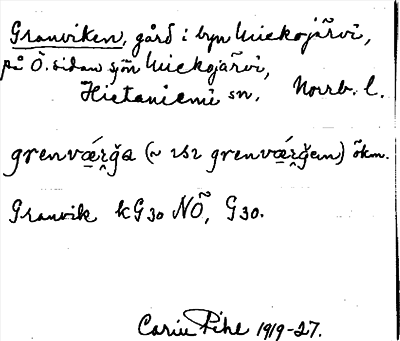 Granviken, gård i byn Miekojärvi,
på Ö. sidan sjön Miekojärvi,
Hietaniemi sn. Norrb. l.
grenvǽrğa (~ ısı grenvǽrğem) ökm.
Granvik kG30 NÖ, G30.
Carin Pihl 1919-27.